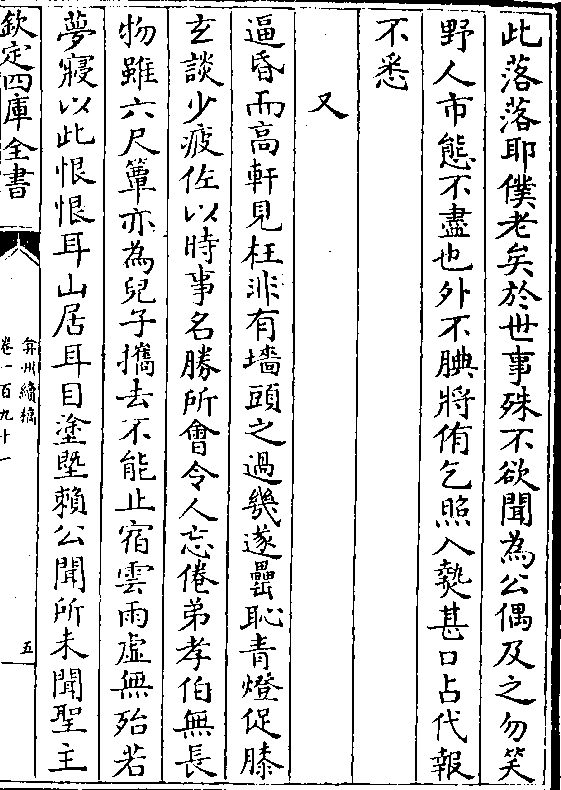 此落落耶僕老矣於世事殊不欲聞為公偶及之勿笑
野人市態不盡也外不腆將侑乞照入𤍠甚口占代報
不悉
又
逼昏而高軒見枉非有墻頭之過幾遂罍恥青燈促膝
玄談少疲佐以時事名勝所會令人忘倦弟孝伯無長
物雖六尺簟亦為兒子攜去不能止宿雲雨虛無殆若
夢寢以此恨恨耳山居耳目塗塈賴公聞所未聞聖主
欽定四庫全書
弇州續稿
卷一百九十一
五